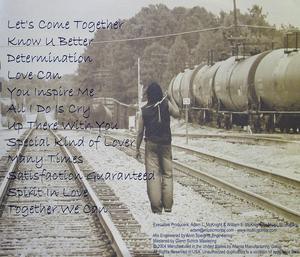 Let's Come Together
Know U Better
Determination
Love Can
You Inspire Me
All I Do Is Cry
Up There With You
Special Kind of Lover
Many Times
Satisfaction Guaranteed
Spirit In Love
Together We Can
Executive Producers: Adam L. McKnight & William B. McKnight
Mix Engineered by
Mastered by Glenn Schick Mastering
Manufactured in the United States by Atlanta Manufacturing Group
All Rights Reserved in USA. Unauthorized duplication is a violation of applicable laws